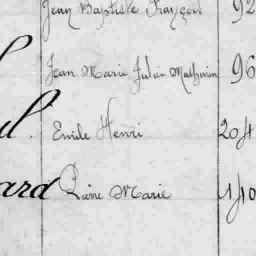 Jean Baptiste François 92
Jean Marie Julien Mathurin 96
Emile Henri 204
ard Reine Marie 140